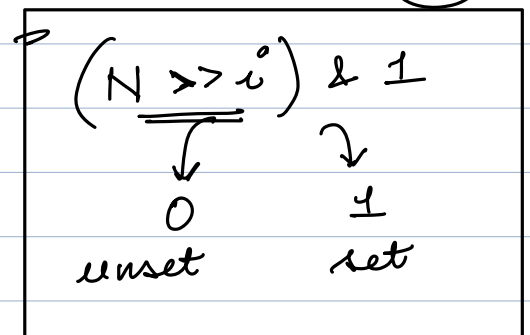 (N >> i) & 1
0 1
unset set